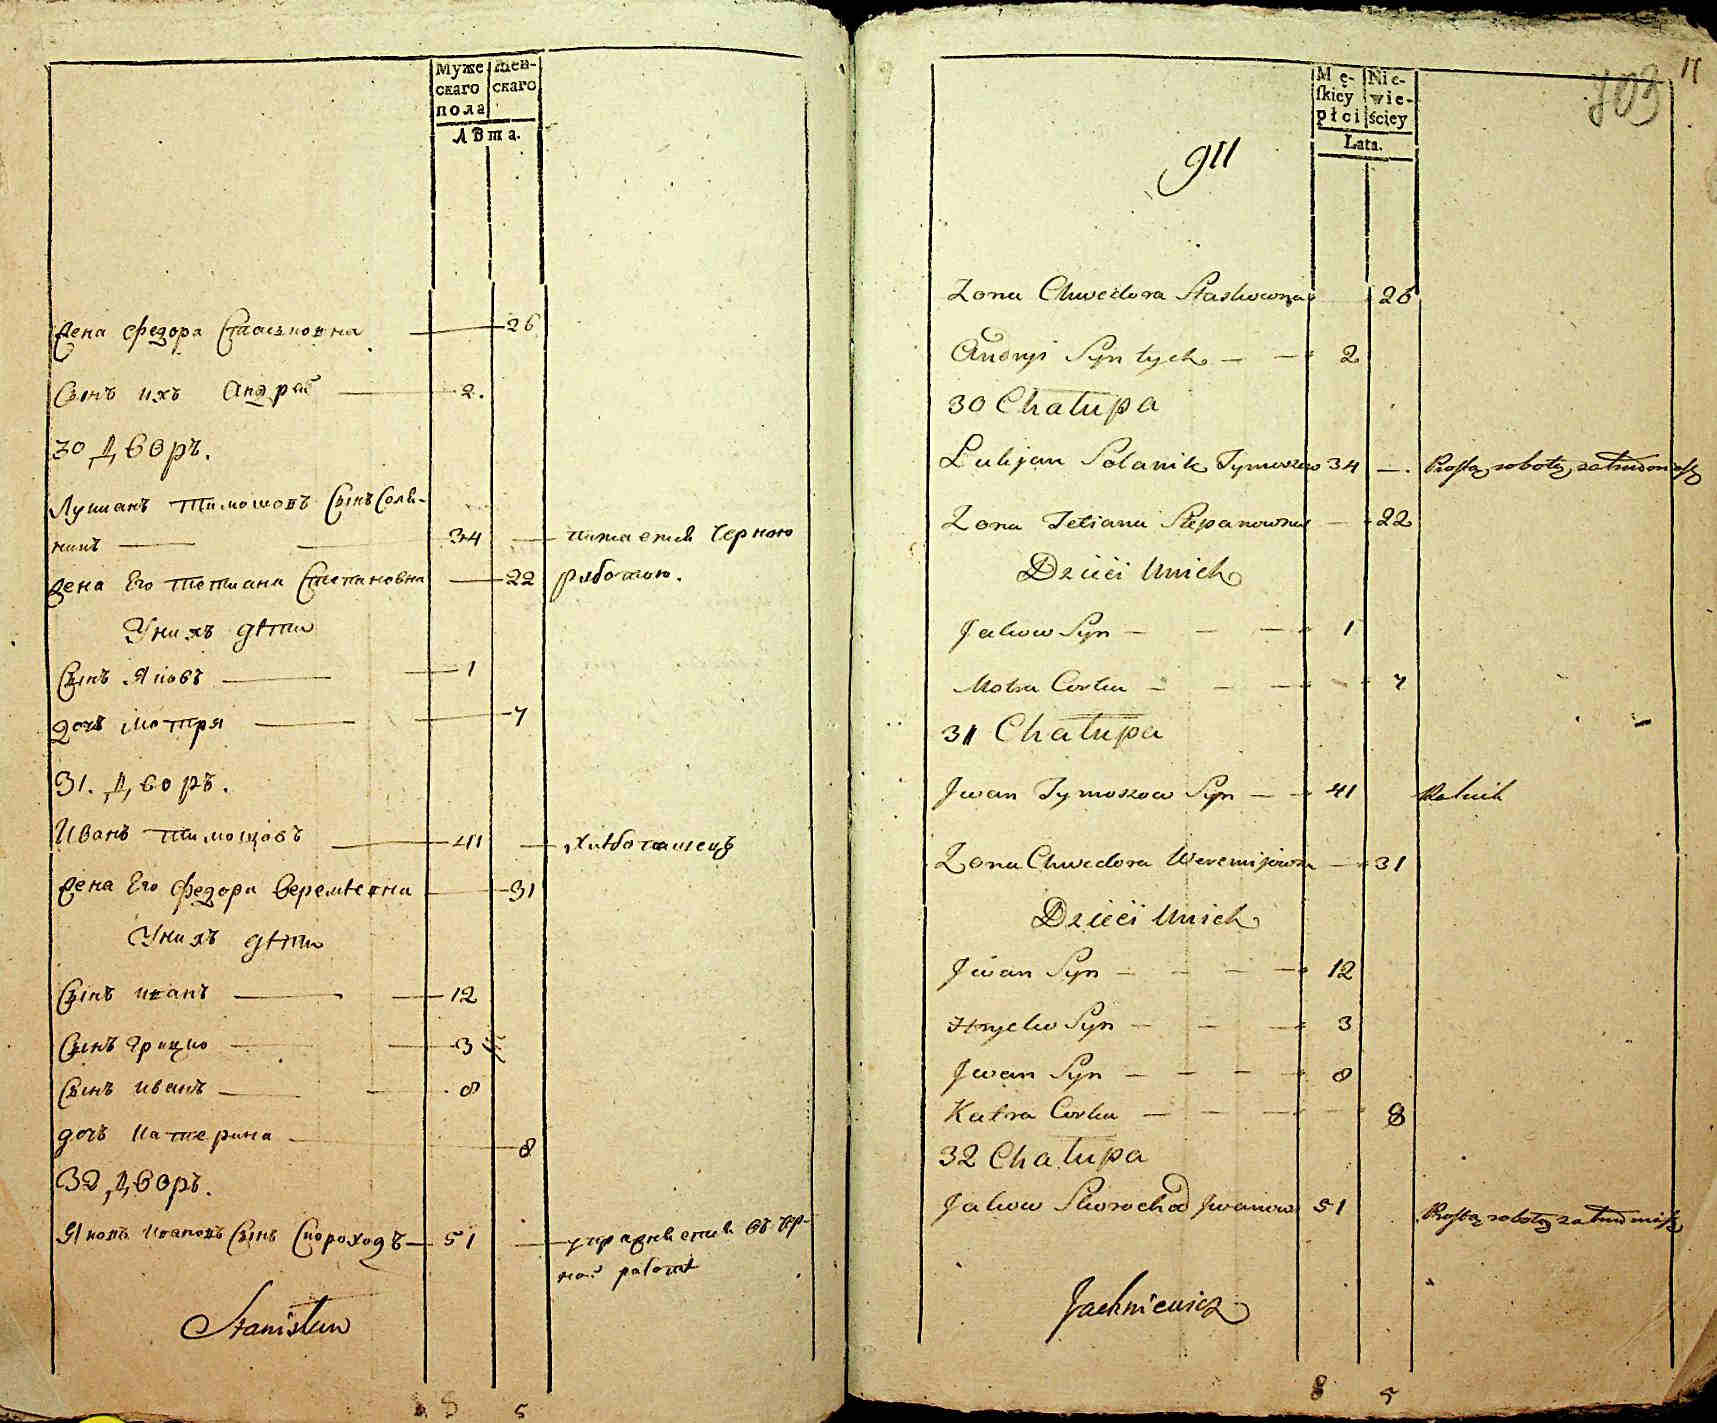 Муже
скаго
пола
Жен-
скаго
лѣта.
Жена Федора Стаськовна 26
Сынъ ихъ Андрѣй 2.
30 Дворъ.
Лукианъ Тимошовъ Сынъ Соля-
никъ 34 питается Черною
Жена Его Тетиана Степановна 22 работою.
У нихъ дѣти
Сынъ Яковъ 1
дочь Мотря 7
31. Дворъ.
Иванъ Тимошовъ 41 хлѣбопашецъ
Жена Его Федора Веремѣевна 31
У нихъ дѣти
Сынъ иванъ 12
Сынъ Грицко 3
Сынъ иванъ 8
дочь Катерина 8
32 Дворъ.
Яковъ Ивановъ Сынъ Скороходъ 51 упражняется въ чор-
ной работѣ
Stanisław
8 5
Mę-
ſkiey
płci
Nie-
wie-
ściey
Lata.
703
11
911
Żona Chwedora Staskowna 26
Andryi Syn tych 2
30 Chałupa
Lukjan Solanik Tymoszow 34 Prostą robotą zatrudnia się
Żona Tetiana Stepanowna 22
Dzieci U nich
Jakow Syn 1
Motra Corka 7
31 Chałupa
Jwan Tymoszow Syn 41 Rolnik
Żona Chwedora Weremijowna 31
Dzieci U nich
Jwan Syn 12
Hrycko Syn 3
Jwan Syn 8
Katra Corka 8
32 Chałupa
Jakow Skorochod Jwanow 51 Prostą robotą zatrudnia się
Jachniewicz
8 5